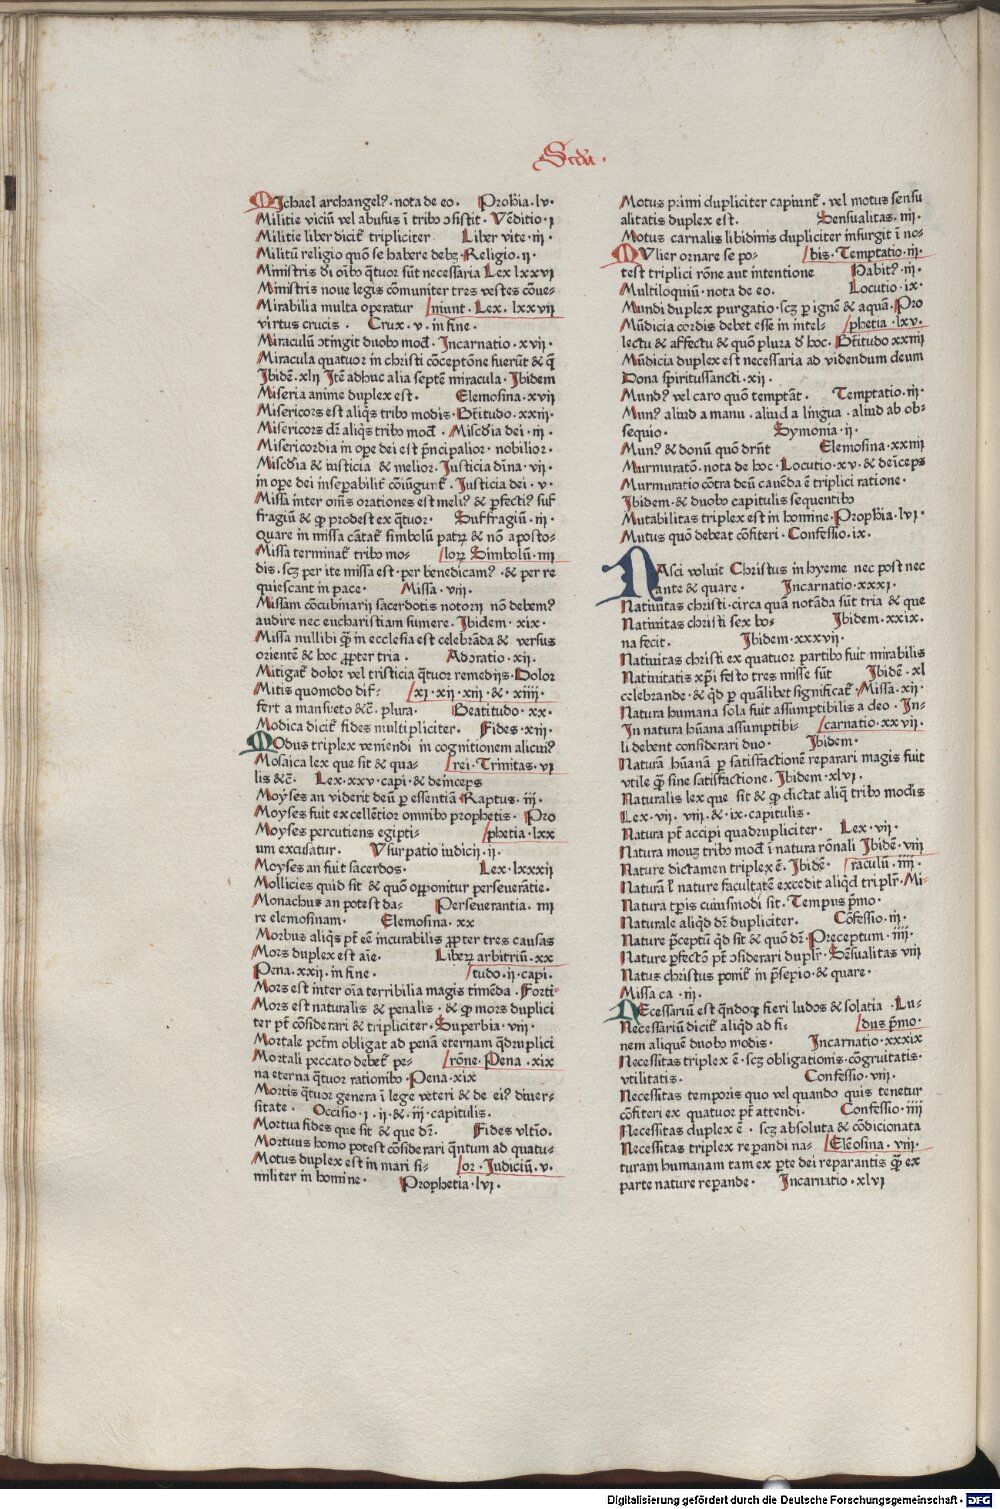 Scda.
Michael archangelꝰ. nota de eo. Prophia. lv.
Militie viciũ vel abusus ĩ tribꝰ ↄsistit. Vẽditio. i
Militie liber dicit̃ tripliciter. Liber vite. iii.
Militũ religio quõ se habere debꝫ. Religio. ii.
Ministris dĩ oĩbꝰ q̃tuor sũt necessaria Lex lxxvi
Ministris noue legis cõmuniter tres vestes cõue-
Mirabilia multa operatur /niunt. Lex. lxxvii
virtus crucis. Crux. v. in fine.
Miraculũ ↄtingit duobꝰ mod̃. Incarnatio. xvii.
Miracula quatuor in christi cõceptõne fuerũt & q̃
Ibidẽ. xlii Itẽ adhuc alia septẽ miracula. Ibidem
Miseria anime duplex est. Elemosina. xvii
Misericors est aliq̃s tribꝰ modis. Bt̃itudo. xxiii.
Misericors dr̃ aliq̃s tribꝰ mod̃. Miscd̃ia dei. iii.
Misericordia in oꝑe dei est p̃ncipalior. nobilior.
Miscd̃ia & iusticia & melior. Iusticia dĩna. vii.
in oꝑe dei inseꝑabilit̃ cõiũgunt̃. Iusticia dei. v.
Missa inter om̃s orationes est meliꝰ & ꝑfectiꝰ suf
fragiũ & ꝙ prodest ex q̃tuor. Suffragiũ. iii.
Quare in missa cãtat̃ simbolũ patꝝ & nõ aposto-
Missa terminat̃ tribꝰ mo- /loꝝ Simbolũ. iiii
dis. scꝫ per ite missa est. per benedicamꝰ. & per re
quiescant in pace. Missa. viii.
Missam cõcubinarij sacerdotis notorij nõ debemꝰ
audire nec eucharistiam sumere. Ibidem. xix.
Missa nullibi q̃ȝ in ecclesia est celebrãda & versus
orientẽ & hoc ꝓpter tria. Adoratio. xii.
Mitigat̃ dolor vel tristicia q̃tuor remedijs. Dolor
Mitis quomodo dif- /xi. xii. xiii & .xiiii.
fert a mansueto &c̃. plura. Beatitudo. xx.
Modica dicit̃ fides multipliciter. Fides. xiii.
Modus triplex veniendi in cognitionem alicuiꝰ
Mosaica lex que sit & qua- /rei. Trinitas. vi
lis &c̃. Lex. xxv. capi. & deinceps
Moyses an viderit deũ ꝑ essentiã. Raptus. iii.
Moyses fuit excellẽtior omnibꝰ prophetis. Pro
Moyses percutiens egipti- /phetia. lxx
um excusatur. Vsurpatio iudicij. ii.
Moyses an fuit sacerdos. Lex. lxxxii
Mollicies quid sit & quõ opponitur perseuerãtie.
Monachus an potest da- Perseuerantia. iiii
re elemosinam. Elemosina. xx
Morbus aliq̃s pt̃ eẽ incurabilis ꝓpter tres causas
Mors duplex est aĩe. Liberꝝ arbitriũ. xx
Pena. xxii. in fine. /tudo. ii. capi.
Mors est inter oĩa terribilia magis timẽda. Forti-
Mors est naturalis & penalis. & ꝙ mors duplici
ter pt̃ cõsiderari & tripliciter. Superbia. viii.
Mortale pctm̃ obligat ad penã eternam q̃druplici
Mortali peccato debet̃ pe- /rõne. Pena. xix
na eterna q̃tuor rationibꝰ. Pena. xix
Mortis q̃tuor genera ĩ lege veteri & de eiꝰ diuer-
sitate. Occisio. i. ii. &. iii. capitulis.
Mortua fides que sit & que dr̃. Fides vltĩo.
Mortuus homo potest cõsiderari q̃ntum ad quatu-
Motus duplex est in mari si- /or. Iudiciũ. v.
militer in homine. Prophetia. lvi.
Motus primi dupliciter capiunt̃. vel motus sensu
alitatis duplex est. Sensualitas. iiii.
Motus carnalis libidinis dupliciter insurgit ĩ no-
Mulier ornare se po- /bis. Temptatio. iii.
test triplici rõne aut intentione Habitꝰ. iii.
Multiloquiũ. nota de eo. Locutio. ix.
Mundi duplex purgatio. scꝫ ꝑ ignẽ & aquã. Pro
Mũdicia cordis debet esse in intel- /phetia. lxv.
lectu & affectu & quõ plura d̃ hoc. Bt̃itudo xxiiii
Mũdicia duplex est necessaria ad videndum deum
Dona spiritussancti. xii.
Mundꝰ vel caro quõ temptãt. Temptatio. iii.
Munꝰ aliud a manu. aliud a lingua. aliud ab ob-
sequio. Symonia. ii.
Munꝰ & donũ quõ dr̃nt Elemosina. xxiiii
Murmuratõ. nota de hoc. Locutio. xv. & deĩceps
Murmuratio cõtra deũ cauẽda ẽ triplici ratione.
Ibidem. & duobꝰ capitulis sequentibꝰ
Mutabilitas triplex est in homine. Prophia. lvi.
Mutus quõ debeat cõfiteri. Confessio. ix.
Nasci voluit Christus in hyeme nec post nec
ante & quare. Incarnatio. xxxi.
Natiuitas christi. circa quã notãda sũt tria & que
Natiuitas christi sex bo- Ibidem. xxix.
na fecit. Ibidem. xxxvii.
Natiuitas christi ex quatuor partibꝰ fuit mirabilis
Natiuitatis xp̃i festo tres misse sũt Ibidẽ. xl
celebrande. & q̃d ꝑ quãlibet significat̃. Missa. xii.
Natura humana sola fuit assumptibilis a deo. In-
In natura hũana assumptibi- /carnatio. xxvii.
li debent considerari duo. Ibidem.
Naturã hũanã ꝑ satisfactionẽ reparari magis fuit
vtile q̃ȝ sine satisfactione. Ibidem. xlvi.
Naturalis lex que sit & ꝙ dictat aliq̃ tribꝰ modis
Lex. vii. viii. & ix. capitulis.
Natura pt̃ accipi quadrupliciter. Lex. vii.
Natura mouꝫ tribꝰ mod̃ ĩ natura rõnali Ibidẽ. viii
Nature dictamen triplex ẽ. Ibidẽ. /raculũ. iiii.
Naturã l̃ nature facultatẽ excedit aliq̃d triplr̃. Mi-
Natura tp̃is cuiusmodi sit. Tempus p̃mo.
Naturale aliq̃d dr̃ dupliciter. Cõfessio. iii.
Nature p̃ceptũ q̃d sit & quõ dr̃. Preceptum. iiii.
Nature ꝑfectõ pt̃ ↄsiderari duplr̃. Sẽsualitas viii
Natus christus ponit̃ in p̃sepio. & quare.
Missa ca. iii.
Necessariũ est q̃ndoqꝫ fieri ludos & solatia. Lu-
Necessariũ dicit̃ aliq̃d ad fi- /dus p̃mo.
nem aliquẽ duobꝰ modis. Incarnatio. xxxix
Necessitas triplex ẽ. scꝫ obligationis. cõgruitatis.
vtilitatis. Confessio. viii.
Necessitas temporis quo vel quando quis tenetur
cõfiteri ex quatuor pt̃ attendi. Confessio. iiii
Necessitas duplex ẽ. scꝫ absoluta & cõdicionata
Necessitas triplex reꝑandi na- /Elẽosina. viii.
turam humanam tam ex ꝑte dei reparantis q̃ȝ ex
parte nature reꝑande. Incarnatio. xlvi
Digitalisierung gefördert durch die Deutsche Forschungsgemeinschaft - DFG